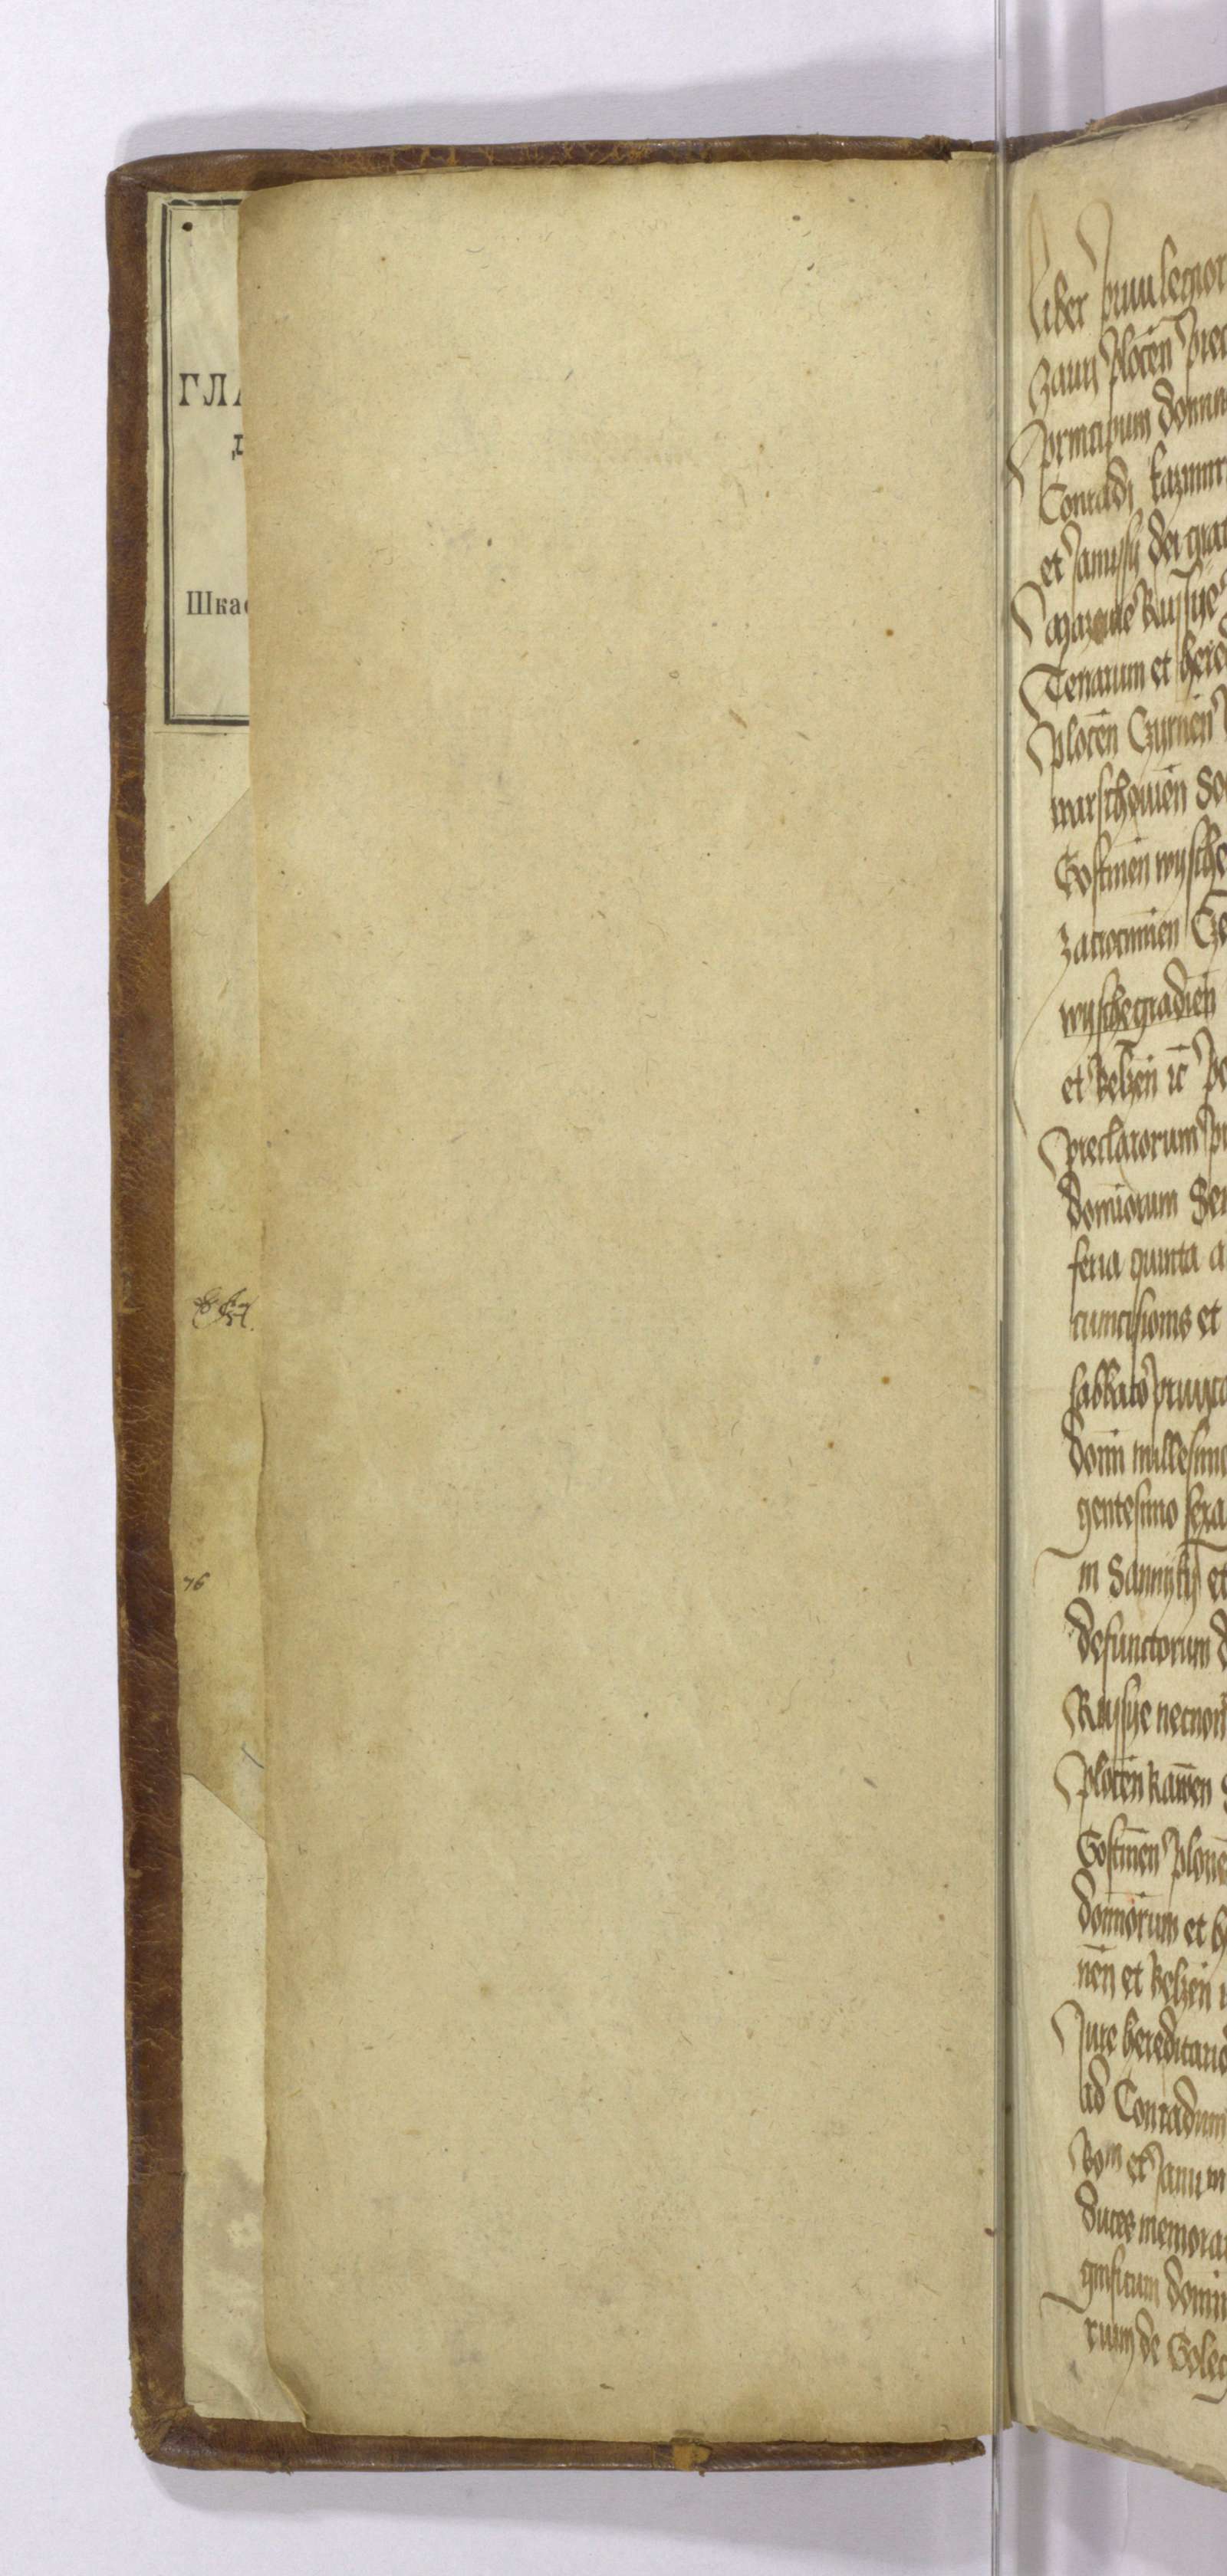 ГЛА
Д
Шка
76
Liber priuilegior
zauij plocen̄ pre
principum domin
Conradi kazimir
et Janussij dei gra
Mazouie Russye
Terrarum et here
plocen̄ Czyrnen̄
warschouien̄ So
Gostinen̄ wysche
zacrocimien̄ Cze
wyschegradien̄
et belzen̄ ꝛc̄ pe
preclarorum pr
dominorum Ser
feria quinta a
cumcisionis et
sabbato
domī millesimo
gentesimo sexa
in Sannyky et
defunctorum d
Russye necnon
plocen̄ Rawen̄ S
Gostinen̄ plone
dominorum et h
nen̄ et belzen̄
Jure hereditario
ad Conradum
Bom et Janu
duces memora
gnificum domin
rium de Golec